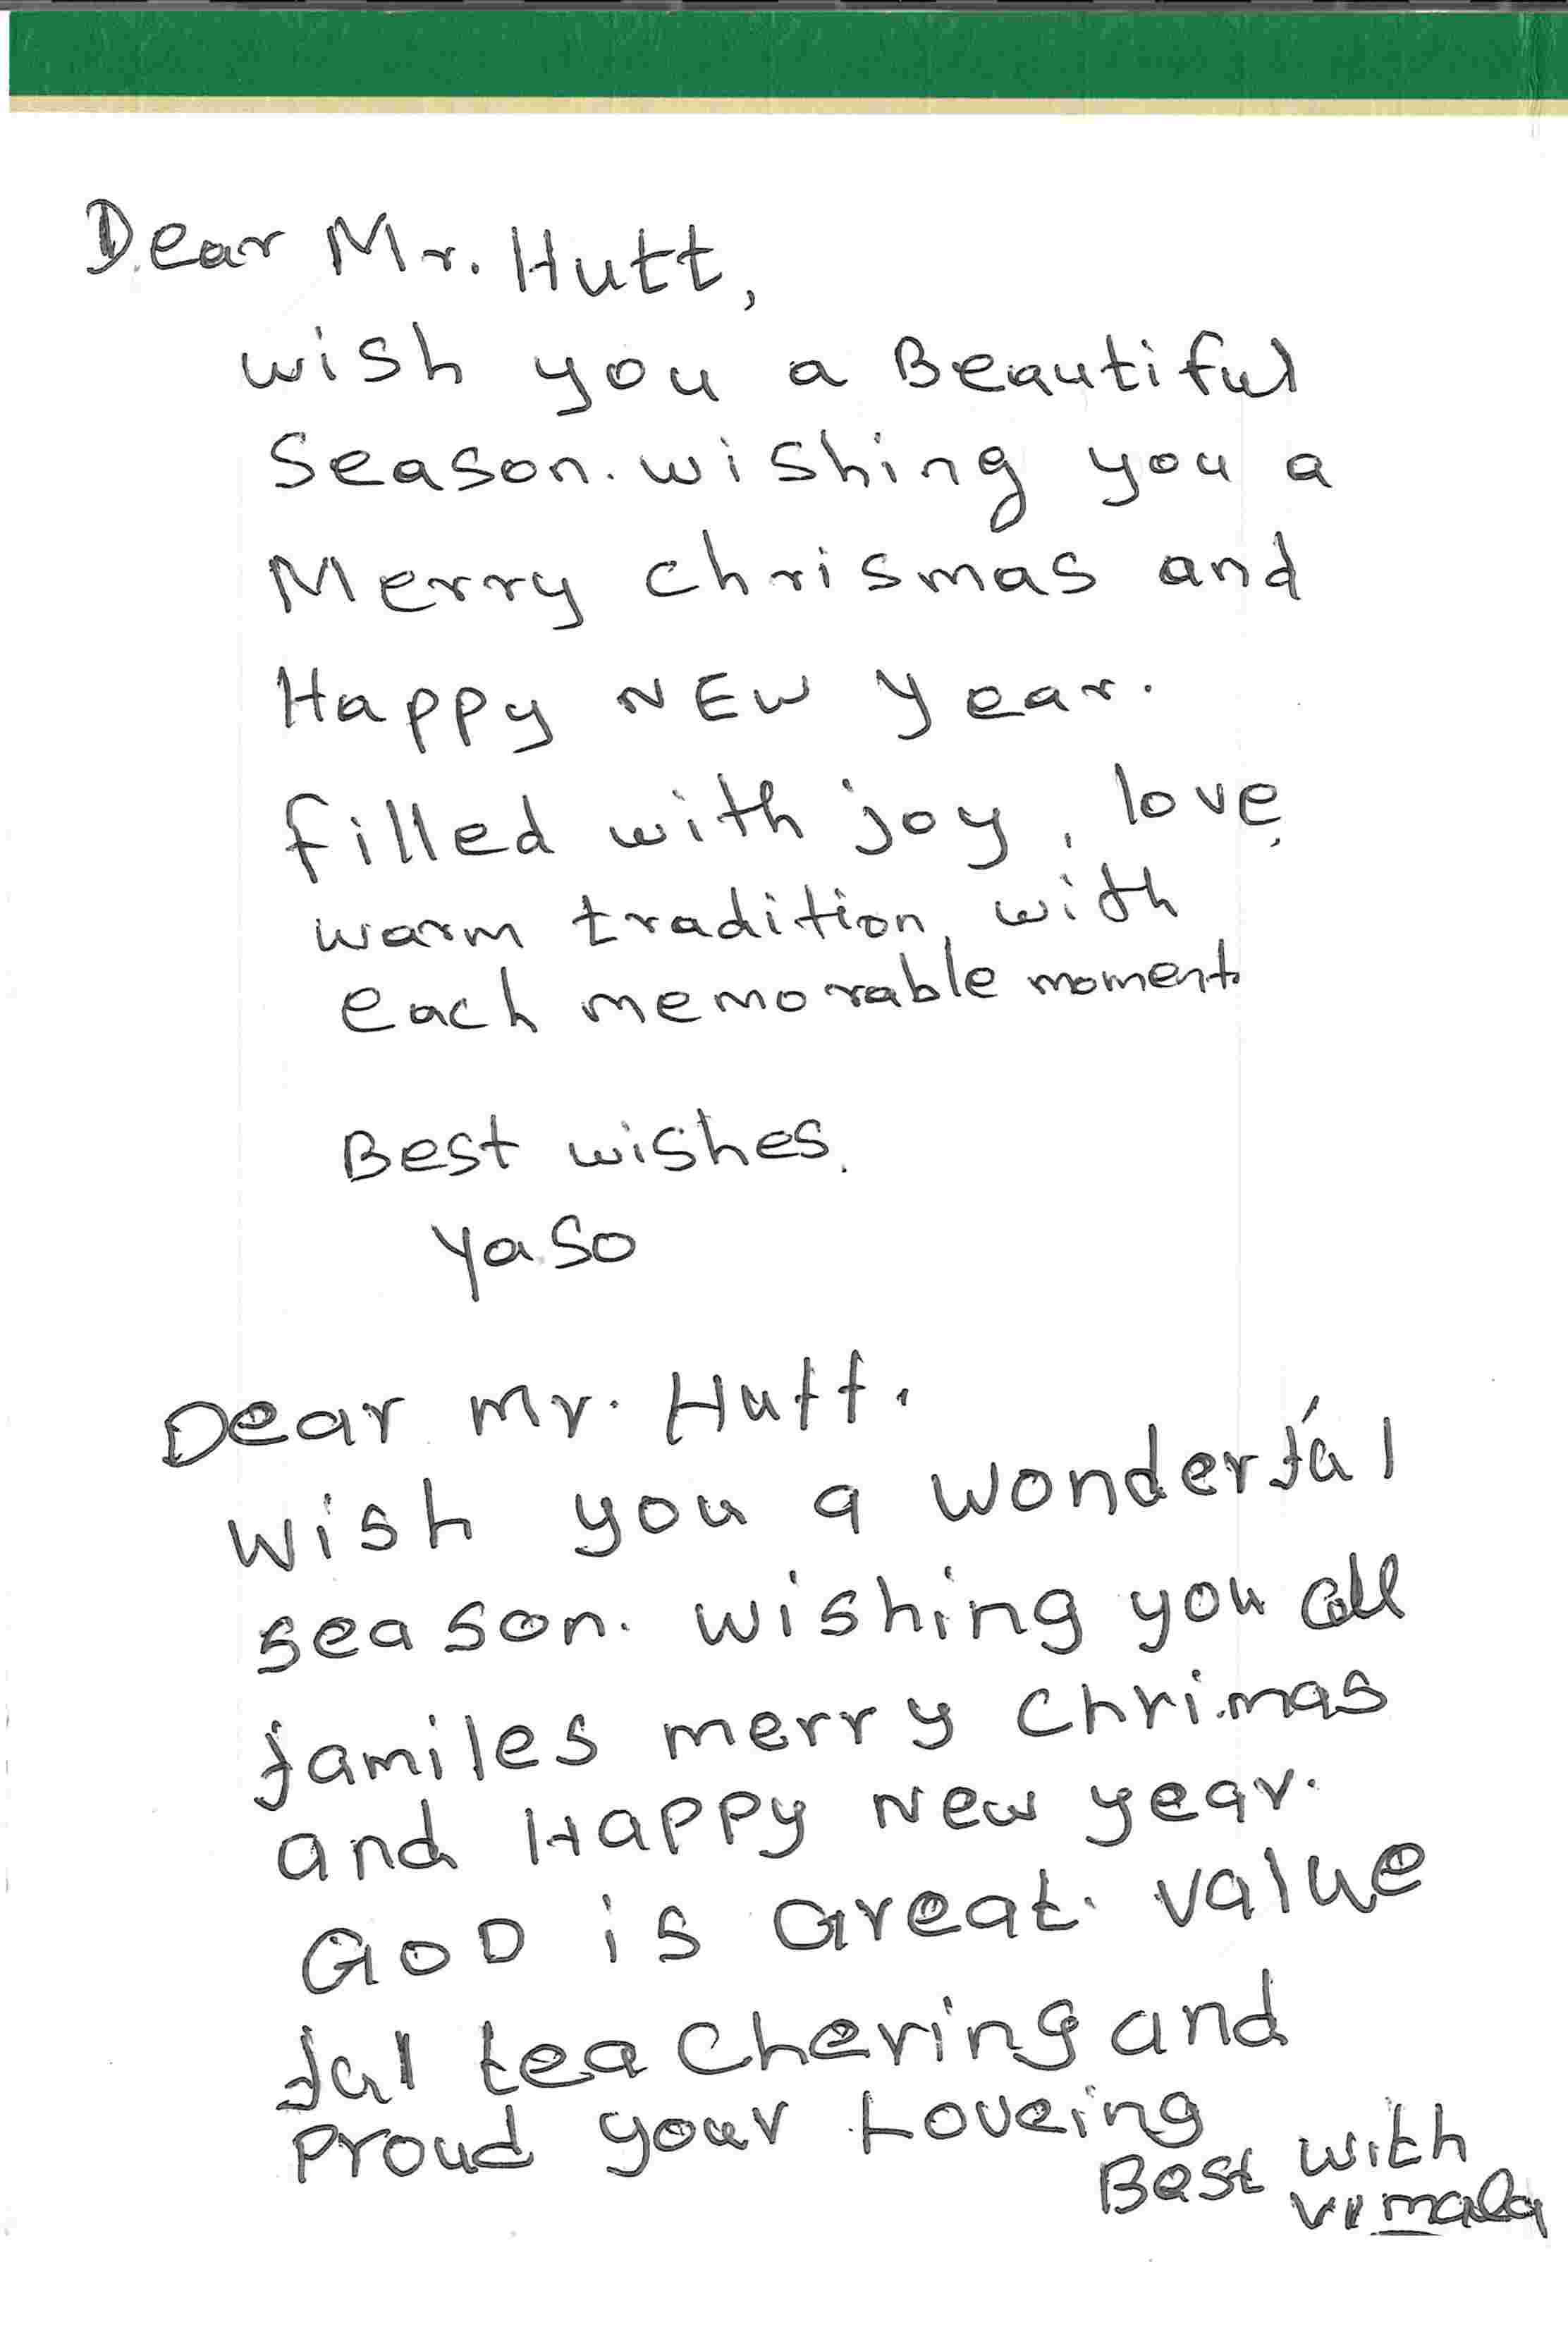 Dear Mr. Hutt,
wish you a Beautiful
Season. wishing you a
Merry chrismas and
Happy NEW year.
filled with joy, love,
warm tradition, with
each memorable moment.
Best wishes.
Yaso
Dear Mr. Hutt.
Wish you a wonderful
season. wishing you all
familes merry chrimas
and Happy New year.
GOD is Great. value
ful teachering and
proud your Loveing
Best with
Vimala